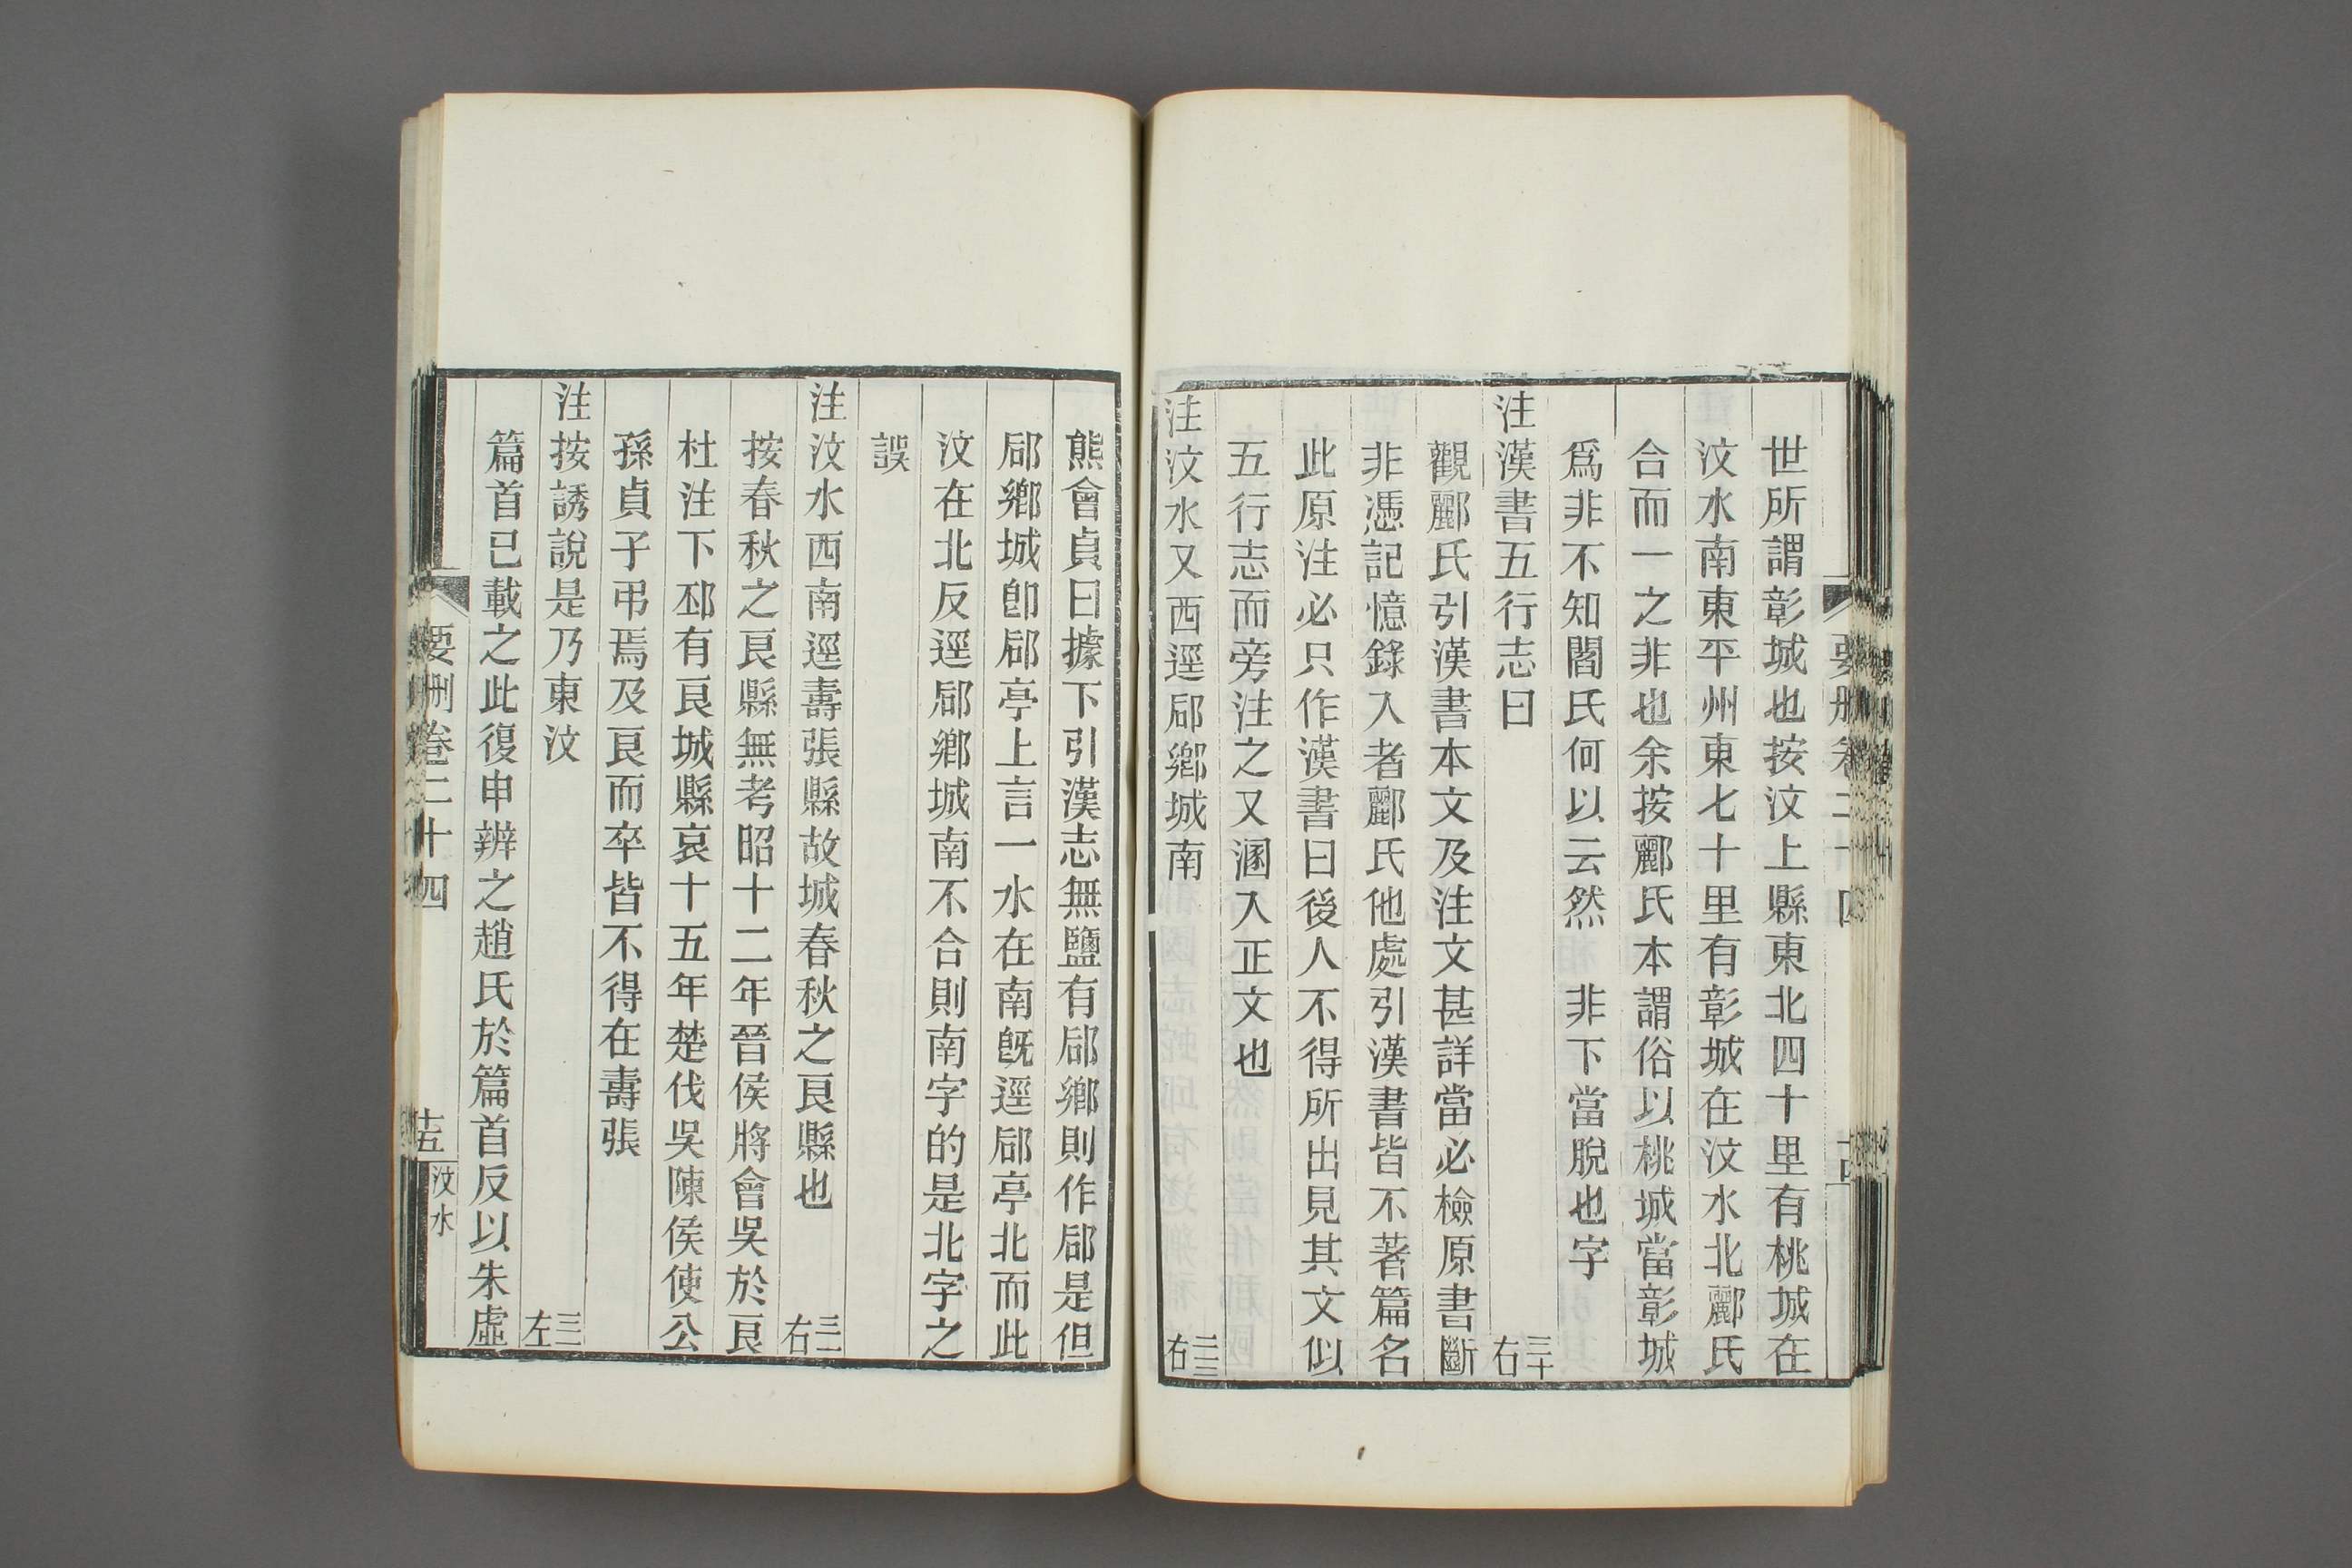 世所謂彰城也按汶上縣東北四十里有桃城在
汶水南東平州東七十里有彰城在汶水北酈氏
合而一之非也余按酈氏本謂俗以桃城當彰城
爲非不知閻氏何以云然　非下當脫也字
注漢書五行志曰　三十右
觀酈氏引漢書本文及注文甚詳當必檢原書斷
非憑記憶錄入者酈氏他處引漢書皆不著篇名
此原注必只作漢書曰後人不得所出見其文似
五行志而旁注之又溷入正文也
注汶水又西逕郈鄉城南　三三右
熊會貞曰據下引漢志無鹽有郈鄉則作郈是但
郈鄉城卽郈亭上言一水在南旣逕郈亭北而此
汶在北反逕郈鄉城南不合則南字的是北字之
誤
注汶水西南逕壽張縣故城春秋之良縣也　三二右
按春秋之良縣無考昭十二年晉侯將會吳於良
杜注下邳有良城縣哀十五年楚伐吳陳侯使公
孫貞子弔焉及良而卒皆不得在壽張
注按誘說是乃東汶　三二左
篇首已載之此復申辨之趙氏於篇首反以朱虛
要刪卷二十四　十五　汶水